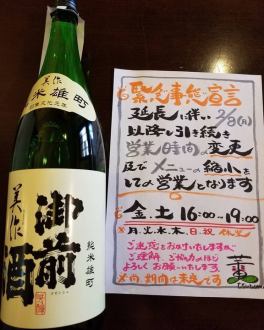 美作
米雄町
御前酒
美作
純米雄町
緊急事態宣言
延長に伴い 2/8(月)
以降も引き続き
営業時間の変更
及び メニューの縮小を
しての営業となります
金.土 16:00〜19:00
月.火.水.木.日.祝 休業
ご迷惑をおかけいたしますが、
ご理解、ご協力のほど
よろしくお願いいたします。
尚、期間は未定です